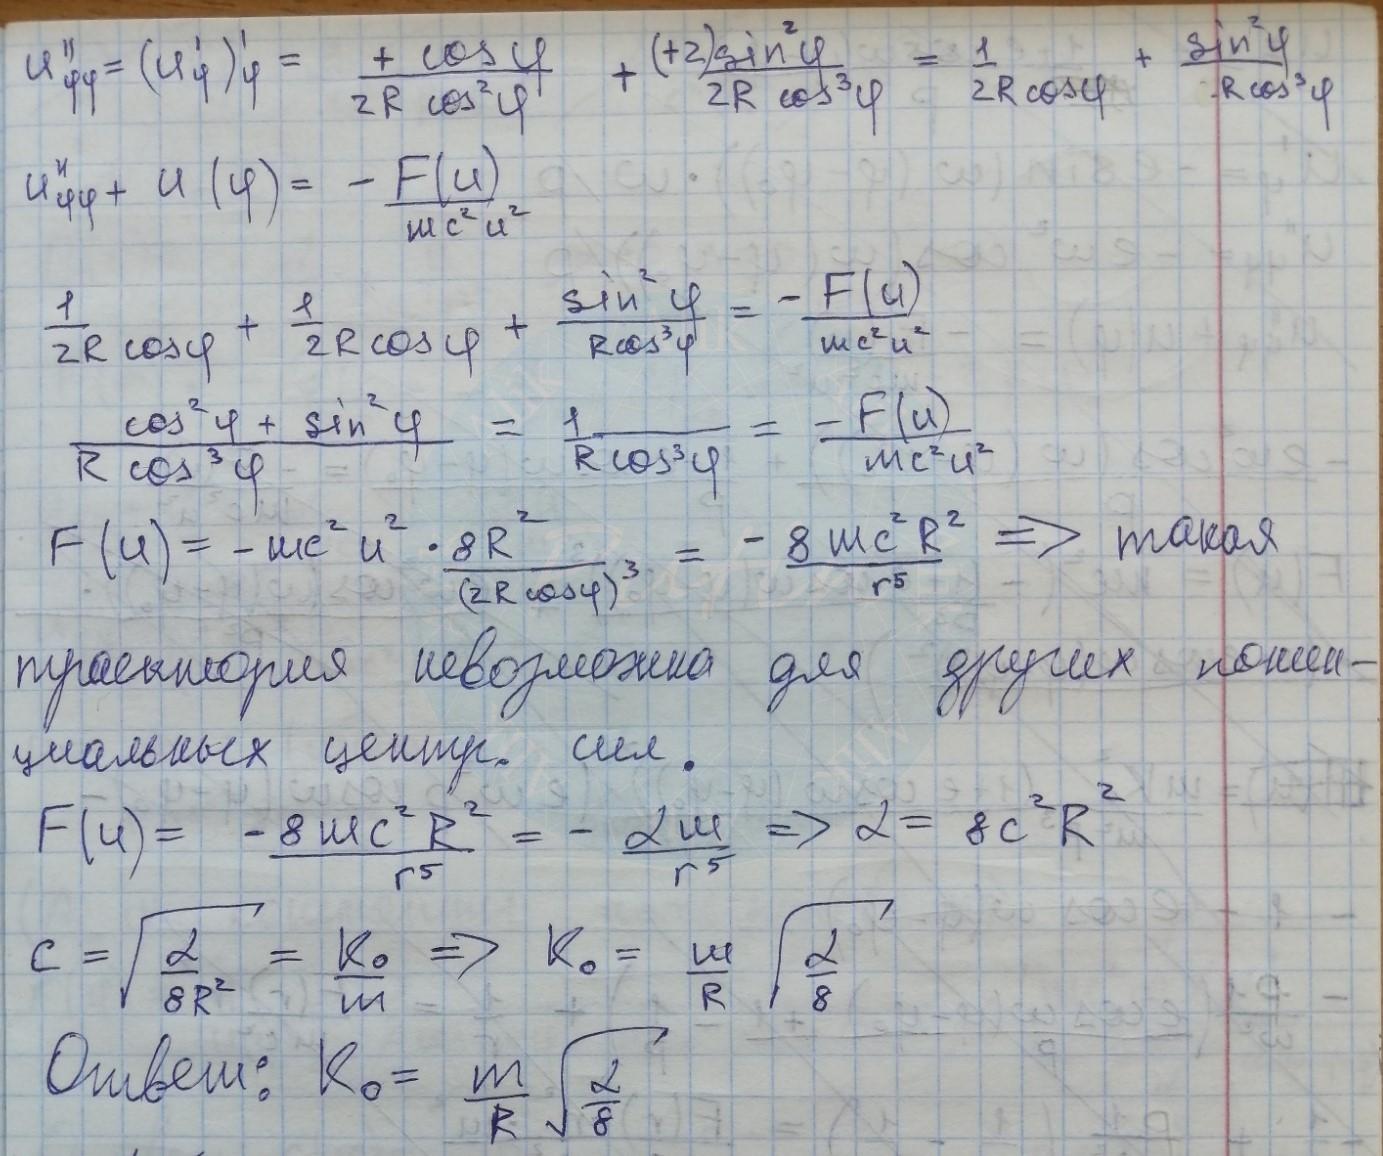 u''φφ = (u'φ)'φ = + cosφ / 2R cos²φ + (+2) sin²φ / 2R cos³φ = 1 / 2R cosφ + sin²φ / R cos³φ
u''φφ + u(φ) = - F(u) / mc²u²
1 / 2R cosφ + 1 / 2R cosφ + sin²φ / R cos³φ = - F(u) / mc²u²
cos²φ + sin²φ / R cos³φ = 1 / R cos³φ = - F(u) / mc²u²
F(u) = - mc²u² · 8R² / (2R cosφ)³ = - 8mc²R² / r⁵ => такая
траектория невозможна для других потен-
циальных центр. сил.
F(u) = - 8mc²R² / r⁵ = - αm / r⁵ => α = 8c²R²
c = √(α / 8R²) = K₀ / m => K₀ = m / R √(α / 8)
Ответ: K₀ = m / R √(α / 8)